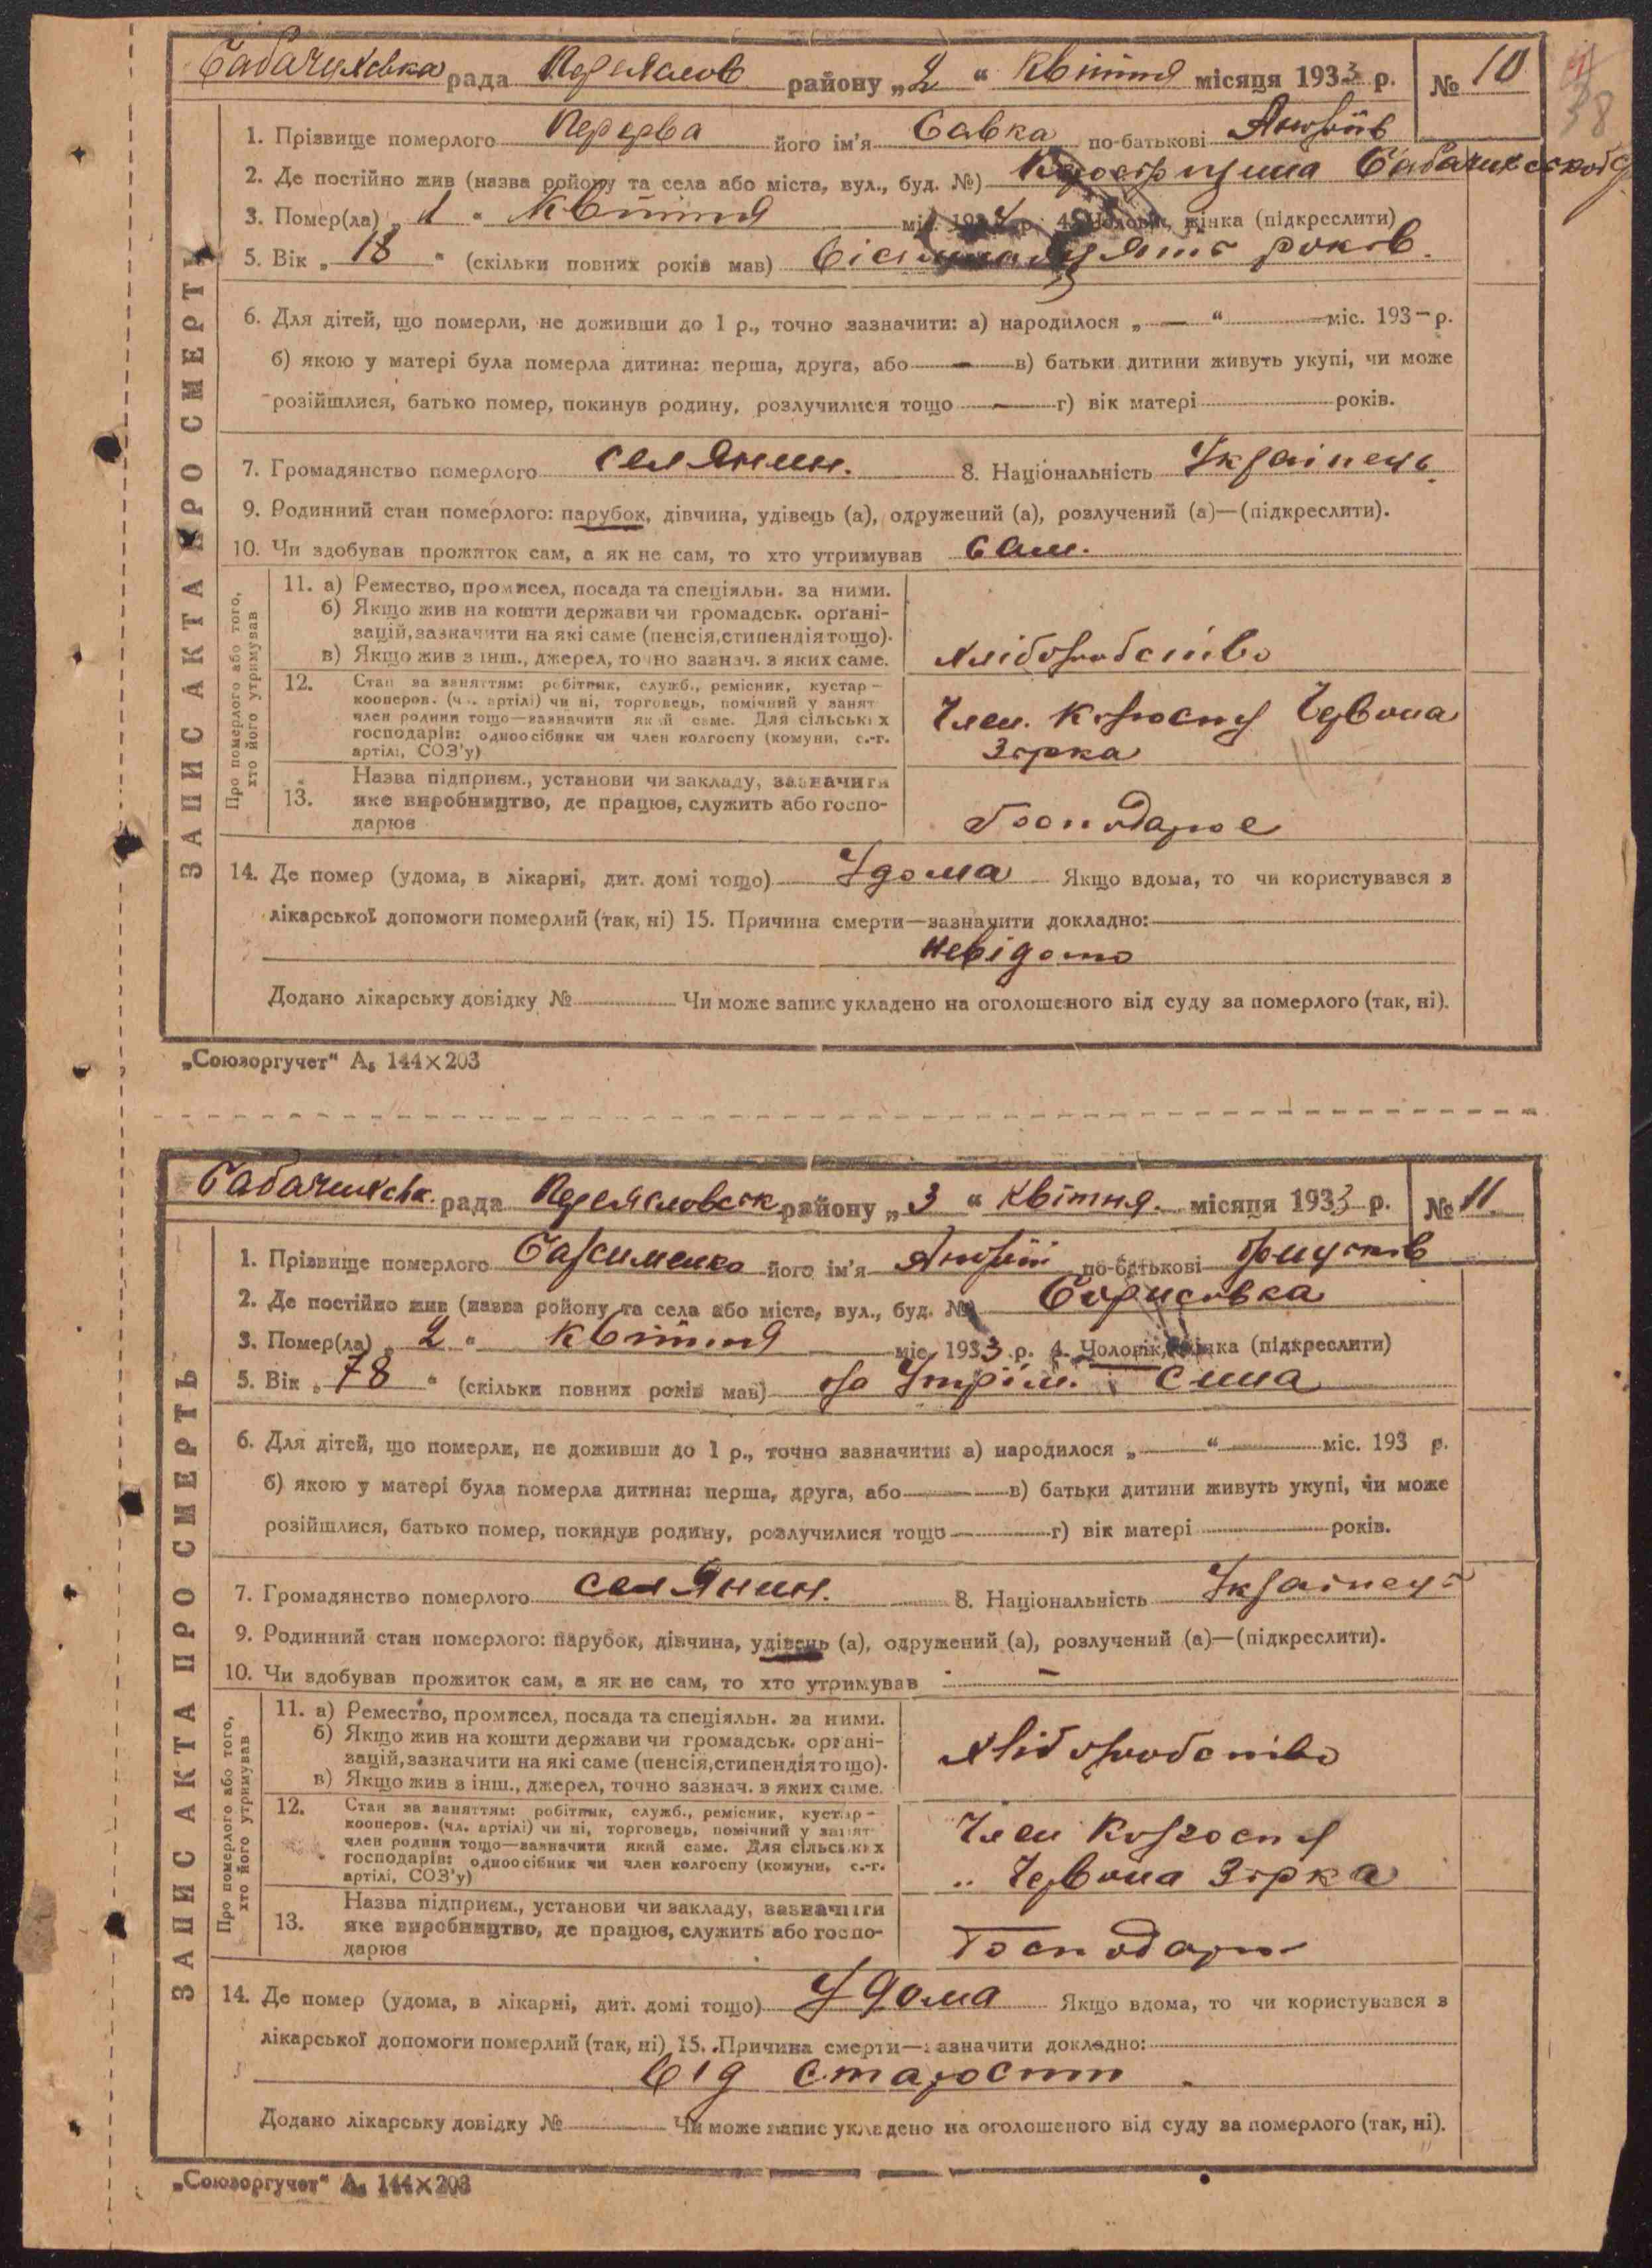 рада района „2“ Квітня місяця 1933 р. № 10
38
1. Прізвище померлого Перерва його ім'я Савка по-батькові Андріїв
2. Де постійно жив (назва ройону та села або міста, вул., буд. №)
3. Помер(ла) „1“ Квітня міс. 193 р. 4. Чоловік, жінка (підкреслити)
5. Вік „18“ (скільки повних років мав) Вісімнадцять років.
6. Для дітей, що померли, не доживши до 1 р., точно зазначити: а) народилося „—“ —міс. 193—р.
б) якою у матері була померла дитина: перша, друга, або — в) батьки дитини живуть укупі, чи може
розійшлися, батько помер, покинув родину, розлучилися тощо — г) вік матері років.
7. Громадянство померлого селянин. 8. Національність Українець.
9. Родинний стан померлого: парубок, дівчина, удівець (а), одружений (а), розлучений (а)—(підкреслити).
10. Чи здобував прожиток сам, а як не сам, то хто утримував сам.
ЗАПИС АКТА ПРО СМЕРТЬ
Про померлого або того,
хто його утримував
11. а) Ремество, промисел, посада та спеціяльн. за ними.
б) Якщо жив на кошти держави чи громадськ. органі-
зацій, зазначити на які саме (пенсія, стипендія тощо).
в) Якщо жив з інш., джерел, точно зазнач. з яких саме.
Хліборобство
12. Стан за заняттям: робітник, служб., ремісник, кустар—
кооперов. (чл. артілі) чи ні, торговець, помічний у занят
член родини тощо—зазначити який саме. Для сільських
господарів: одноосібник чи член колгоспу (комуни, с.-г.
артілі, СОЗ'у)
Член. Колгоспу Червона
Зірка
13. Назва підприєм., установи чи закладу, зазначити
яке виробництво, де працює, служить або госпо-
дарює
Господарює
14. Де помер (удома, в лікарні, дит. домі тощо) Удома Якщо вдома, то чи користувався з
лікарської допомоги померлий (так, ні) 15. Причина смерти—зазначити докладно:
Невідомо
Додано лікарську довідку № Чи може запис укладено на оголошеного від суду за померлого (так, ні).
„Союзоргучет“ А₅ 144×203
рада району „3“ Квітня. місяця 1933 р. № 11.
1. Прізвище померлого його ім'я Андрій по-батькові
2. Де постійно жив (назва ройону та села або міста, вул., буд. №) Борисовка
3. Помер(ла) „2“ Квітня міс. 1933 р. 4. Чоловік, жінка (підкреслити)
5. Вік „78“ (скільки повних років мав) на Утрим. Сина
6. Для дітей, що померли, не доживши до 1 р., точно зазначити: а) народилося „—“ міс. 193 р.
б) якою у матері була померла дитина: перша, друга, або — в) батьки дитини живуть укупі, чи може
розійшлися, батько помер, покинув родину, розлучилися тощо — г) вік матері років.
7. Громадянство померлого селянин. 8. Національність Українець
9. Родинний стан померлого: парубок, дівчина, удівець (а), одружений (а), розлучений (а)—(підкреслити).
10. Чи здобував прожиток сам, а як не сам, то хто утримував —
ЗАПИС АКТА ПРО СМЕРТЬ
Про померлого або того,
хто його утримував
11. а) Ремество, промисел, посада та спеціяльн. за ними.
б) Якщо жив на кошти держави чи громадськ. органі-
зацій, зазначити на які саме (пенсія, стипендія тощо).
в) Якщо жив з інш., джерел, точно зазнач. з яких саме.
Хліборобство
12. Стан за заняттям: робітник, служб., ремісник, кустар—
кооперов. (чл. артілі) чи ні, торговець, помічний у занят
член родини тощо—зазначити який саме. Для сільських
господарів: одноосібник чи член колгоспу (комуни, с.-г.
артілі, СОЗ'у)
Член Колгоспу
„ Червона Зірка
13. Назва підприєм., установи чи закладу, зазначити
яке виробництво, де працює, служить або госпо-
дарює
Господарює
14. Де помер (удома, в лікарні, дит. домі тощо) Удома Якщо вдома, то чи користувався з
лікарської допомоги померлий (так, ні) 15. Причина смерти—зазначити докладно:
Від старости.
Додано лікарську довідку № Чи може запис укладено на оголошеного від суду за померлого (так, ні).
„Союзоргучет“ А₅ 144×203